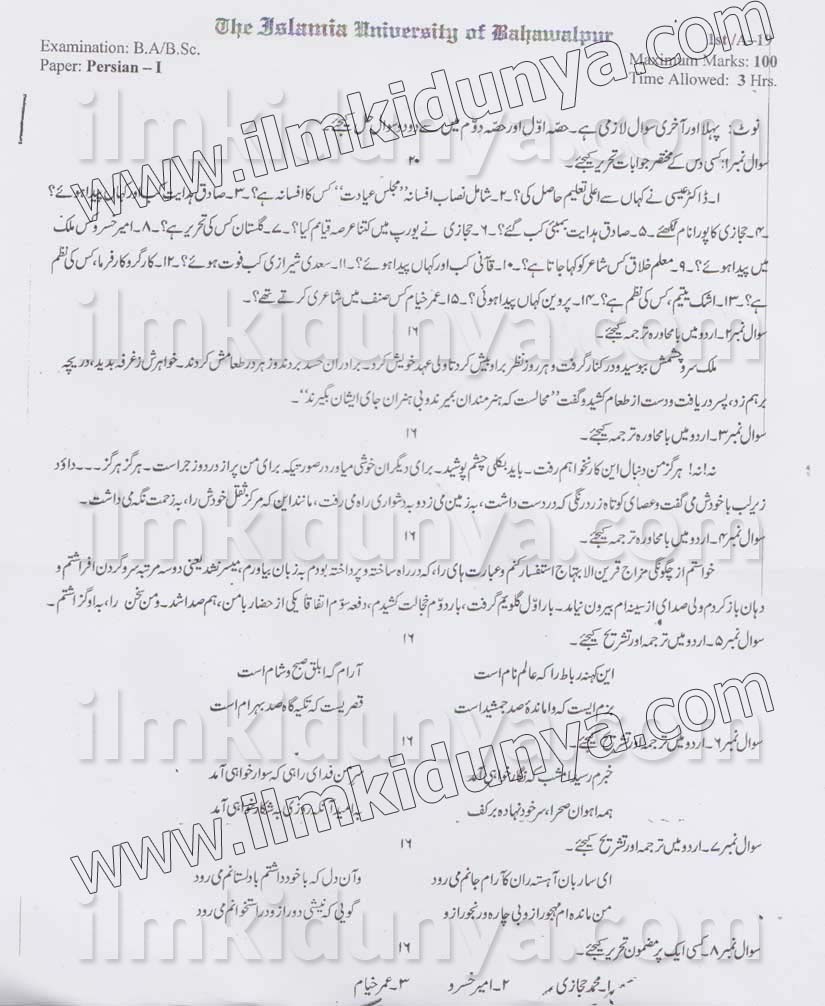 The Islamia University of Bahawalpur
Examination: B.A/B.Sc. 1st/A-19
Paper: Persian – I Maximum Marks: 100
Time Allowed: 3 Hrs.
نوٹ: پہلا اور آخری سوال لازمی ہے۔ حصہ اوّل اور حصہ دوّم میں سے دو دو سوال حل کیجئے۔
سوال نمبر ۱: کسی دس کے مختصر جوابات تحریر کیجئے۔ ۲۰
۱۔ ڈاکٹر عیسیٰ نے کہاں سے اعلیٰ تعلیم حاصل کی؟ ۲۔ شامل نصاب افسانہ ”مجلس عبادت“ کس کا افسانہ ہے؟ ۳۔ صادق ہدایت کب اور کہاں پیدا ہوئے؟
۴۔ حجازی کا پورا نام لکھئے۔ ۵۔ صادق ہدایت بمبئی کب گئے؟ ۶۔ حجازی نے یورپ میں کتنا عرصہ قیام کیا؟ ۷۔ گلستان کس کی تحریر ہے؟ ۸۔ امیر خسرو کس ملک
میں پیدا ہوئے؟ ۹۔ معلم خلاق کس شاعر کو کہا جاتا ہے؟ ۱۰۔ قآنی کب اور کہاں پیدا ہوئے؟ ۱۱۔ سعدی شیرازی کب فوت ہوئے؟ ۱۲۔ کارگر و کارفرما، کس کی نظم
ہے؟ ۱۳۔ اشک یتیم، کس کی نظم ہے؟ ۱۴۔ پروین کہاں پیدا ہوئی؟ ۱۵۔ عمر خیام کس صنف میں شاعری کرتے تھے؟
سوال نمبر ۲۔ اردو میں با محاورہ ترجمہ کیجئے۔ ۱۶
ملک سر و چشمش ببوسید و در کنار گرفت و ہر روز نظر براو بیش کرد تا ولی عہد خویش کرد۔ برادران حسد بردند و زہر در طعامش کردند۔ خواہرش ز غرفہ بدید، دریچہ
برہم زد، پسر دریافت و دست از طعام کشید و گفت ”محالست کہ ہنرمندان بمیرند و بی ہنران جای ایشان بگیرند“۔
سوال نمبر ۳۔ اردو میں با محاورہ ترجمہ کیجئے۔ ۱۶
نہ! نہ! ہرگز من دنبال این کار نخواہم رفت۔ باید بکلی چشم پوشید۔ برای دیگران خوشی میاورد در صورتیکہ برای من پر از درد و زجر است۔ ہرگز ہرگز۔۔۔ داؤد
زیرلب با خودش می گفت و عصای کوتاہ زرد رنگی کہ در دست داشت، بہ زمین می زد و بہ دشواری راہ می رفت، مانند این کہ مرکز ثقل خودش را، بہ زحمت نگہ می داشت۔
سوال نمبر ۴۔ اردو میں با محاورہ ترجمہ کیجئے۔ ۱۶
خواستم از چگونگی مزاج قرین الابتہاج استفسار کنم و عبارت ہای را، کہ در راہ ساختہ و پرداختہ بودم بہ زبان بیاورم، میسر نشد یعنی دو سہ مرتبہ سر و گردن افراشتم و
دہان باز کردم ولی صدای از سینہ ام بیرون نیامد۔ بار اوّل گلویم گرفت، بار دوّم خجالت کشیدم، دفعہ سوّم اتفاقا یکی از حضار بامن، ہم صدا شد۔ و من سخن را، بہ او گزاشتم۔
سوال نمبر ۵۔ اردو میں ترجمہ اور تشریح کیجئے۔ ۱۶
این کہنہ رباط را کہ عالم نام است آرام گہ ابلق صبح و شام است
بزم ایست کہ واماندہ صد جمشید است قصریست کہ تکیہ گاہ صد بہرام است
سوال نمبر ۶۔ اردو میں ترجمہ اور تشریح کیجئے۔ ۱۶
خبرم رسید امشب کہ نگار خواہی آمد سر من فدای راہی کہ سوار خواہی آمد
ہمہ اہوان صحرا، سر خود نہادہ بر کف بہ امید آنکہ روزی بہ شکار خواہی آمد
سوال نمبر ۷۔ اردو میں ترجمہ اور تشریح کیجئے۔ ۱۶
ای ساربان آہستہ ران کآرام جانم می رود وآن دل کہ با خود داشتم با دلستانم می رود
من ماندہ ام مہجور ازو بی چارہ و رنجور ازو گویی کہ نیشی دور ازو در استخوانم می رود
سوال نمبر ۸۔ کسی ایک پر مضمون تحریر کیجئے۔ ۱۶
۱۔ محمد حجازی ۲۔ امیر خسرو ۳۔ عمر خیام
www.ilmkidunya.com
www.ilmkidunya.com
ilmkidunya.com
ilmkidunya.com
ilmkidunya.com
ilmkidunya.com
ilmkidunya.com
ilmkidunya.com